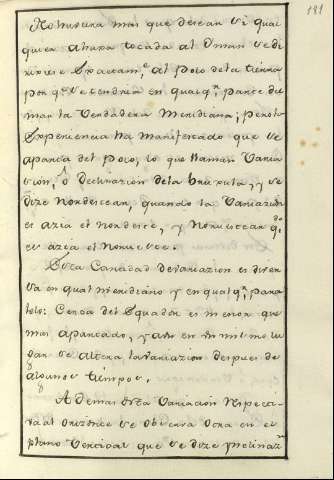 181
No hubiera mas que desear si qual
quiera ahuja tocada al Yman se di
rixiese Exactam.te al Polo de la tierra
por q.e se tendria en qualq.r parte del
mar la Verdadera Meridiana; pero la
Experiencia ha manifestado que se
aparta del Polo, lo que llaman Varia
cion, ó declinazion de la bruxula, y se
dize Nordestear, quando la Variazion
es azia el nordeste, y Noruestear q.do
es azia el Norueste.
Esta Cantidad de variazion es diver
sa en qual meridiano y en qualq.r para
lelo: Cerca del Equador es menor que
mas apartado, y aun en un mismo lu
gar se altera la variazion despues de
algunos tiempos.
Ademas esta Variacion respecti
va al orizonte se observa otra en el
plano Vertical que se dize inclinaz.n